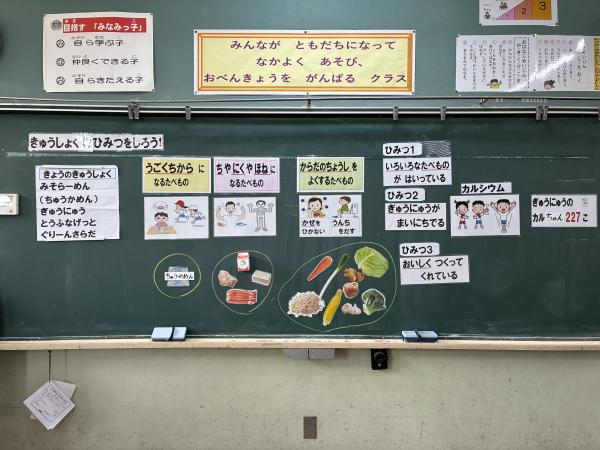 目指す「みなみっ子」
自ら学ぶ子
仲良くできる子
自らきたえる子
みんなが ともだちになって
なかよく あそび、
おべんきょうを がんばる クラス
2
3
きゅうしょく
ひみつをしろう!
きょうのきゅうしょく
みそらーめん
(ちゅうかめん)
ぎゅうにゅう
とうふなげっと
ぐりーんさらだ
うごくちから に
なるたべもの
ちゃめん
ちやにくやほね に
なるたべもの
からだのちょうし を
よくするたべもの
かぜを
ひかない
うんち
をだす
ひみつ1
いろいろなたべもの
が はいっている
ひみつ2
ぎゅうにゅうが
まいにちでる
ひみつ3
おいしく つくって
くれている
カルシウム
ぎゅうにゅうの
カルちゅん 227こ